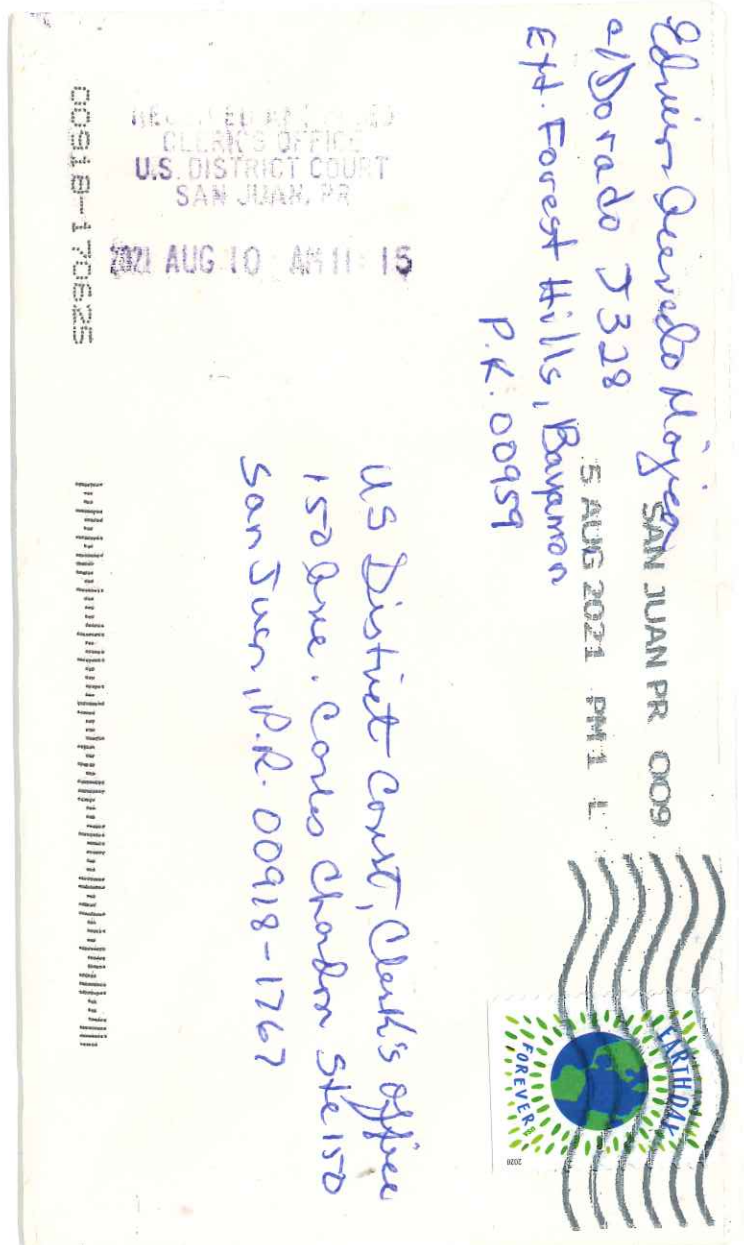 Edwin Quevedo Mójica
c/Dorado J328
Ext. Forest Hills, Bayamon
P.R. 00959
SAN JUAN PR 009
5 AUG 2021 PM 1 L
EARTH DAY
FOREVER
2020
US District Court, Clerk's office
150 Ave. Carlos Chardon Ste 150
San Juan, P.R. 00918-1767
CLERK'S OFFICE
U.S. DISTRICT COURT
SAN JUAN, PR
2021 AUG 10 AM 11 15
00918-170625